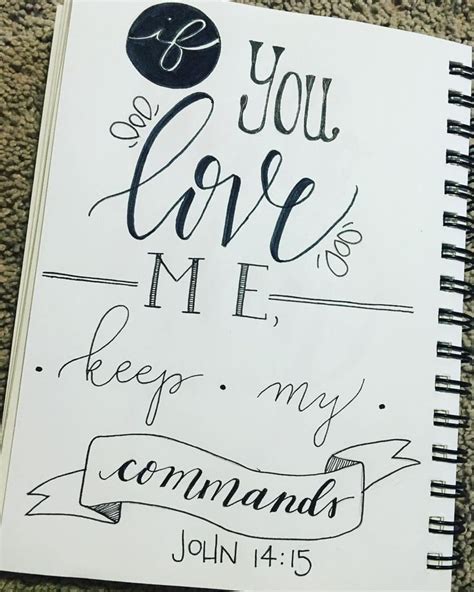 if
YOU
love
ME,
• keep • my •
commands
JOHN 14:15